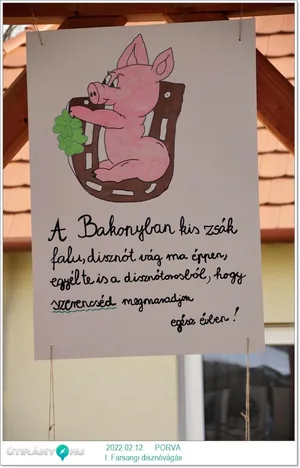 A Bakonyban kis zsák
falu, disznót vág ma éppen,
egyél te is a disznótorosból, hogy
szerencséd megmaradjon
egész évben!
ÚTIRÁNY.HU
2022.02.12 PORVA
I. Farsangi disznóvágás